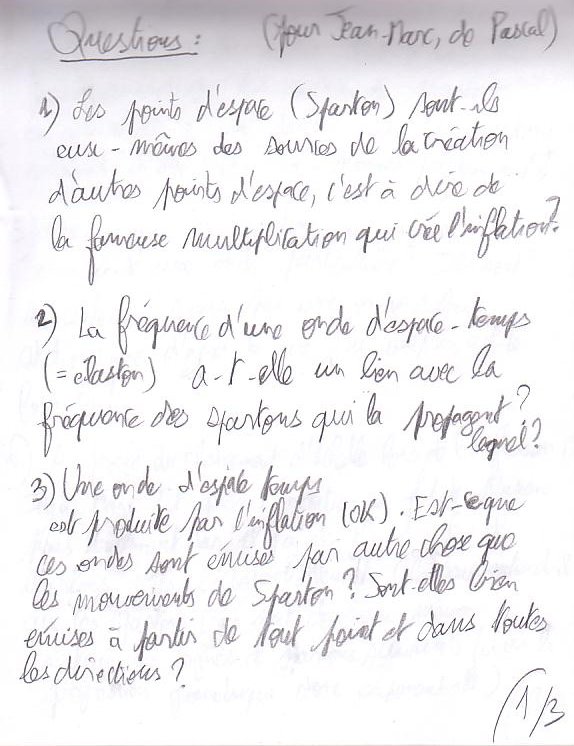 Questions : (pour Jean-Marc, de Pascal)
1) Les points d'espace (Sparton) sont-ils
eux-mêmes des sources de la création
d'autres points d'espace, c'est à dire de
la fameuse multiplication qui crée l'inflation?
2) La fréquence d'une onde d'espace-temps
(= élaston) a-t-elle un lien avec la
fréquence des spartons qui la propagent?
lequel?
3) Une onde d'espace temps
est produite par l'inflation (OK). Est-ce que
ces ondes sont émises par autre chose que
les mouvements de Sparton? Sont-elles bien
émises à partir de tout point et dans toutes
les directions?
1/3